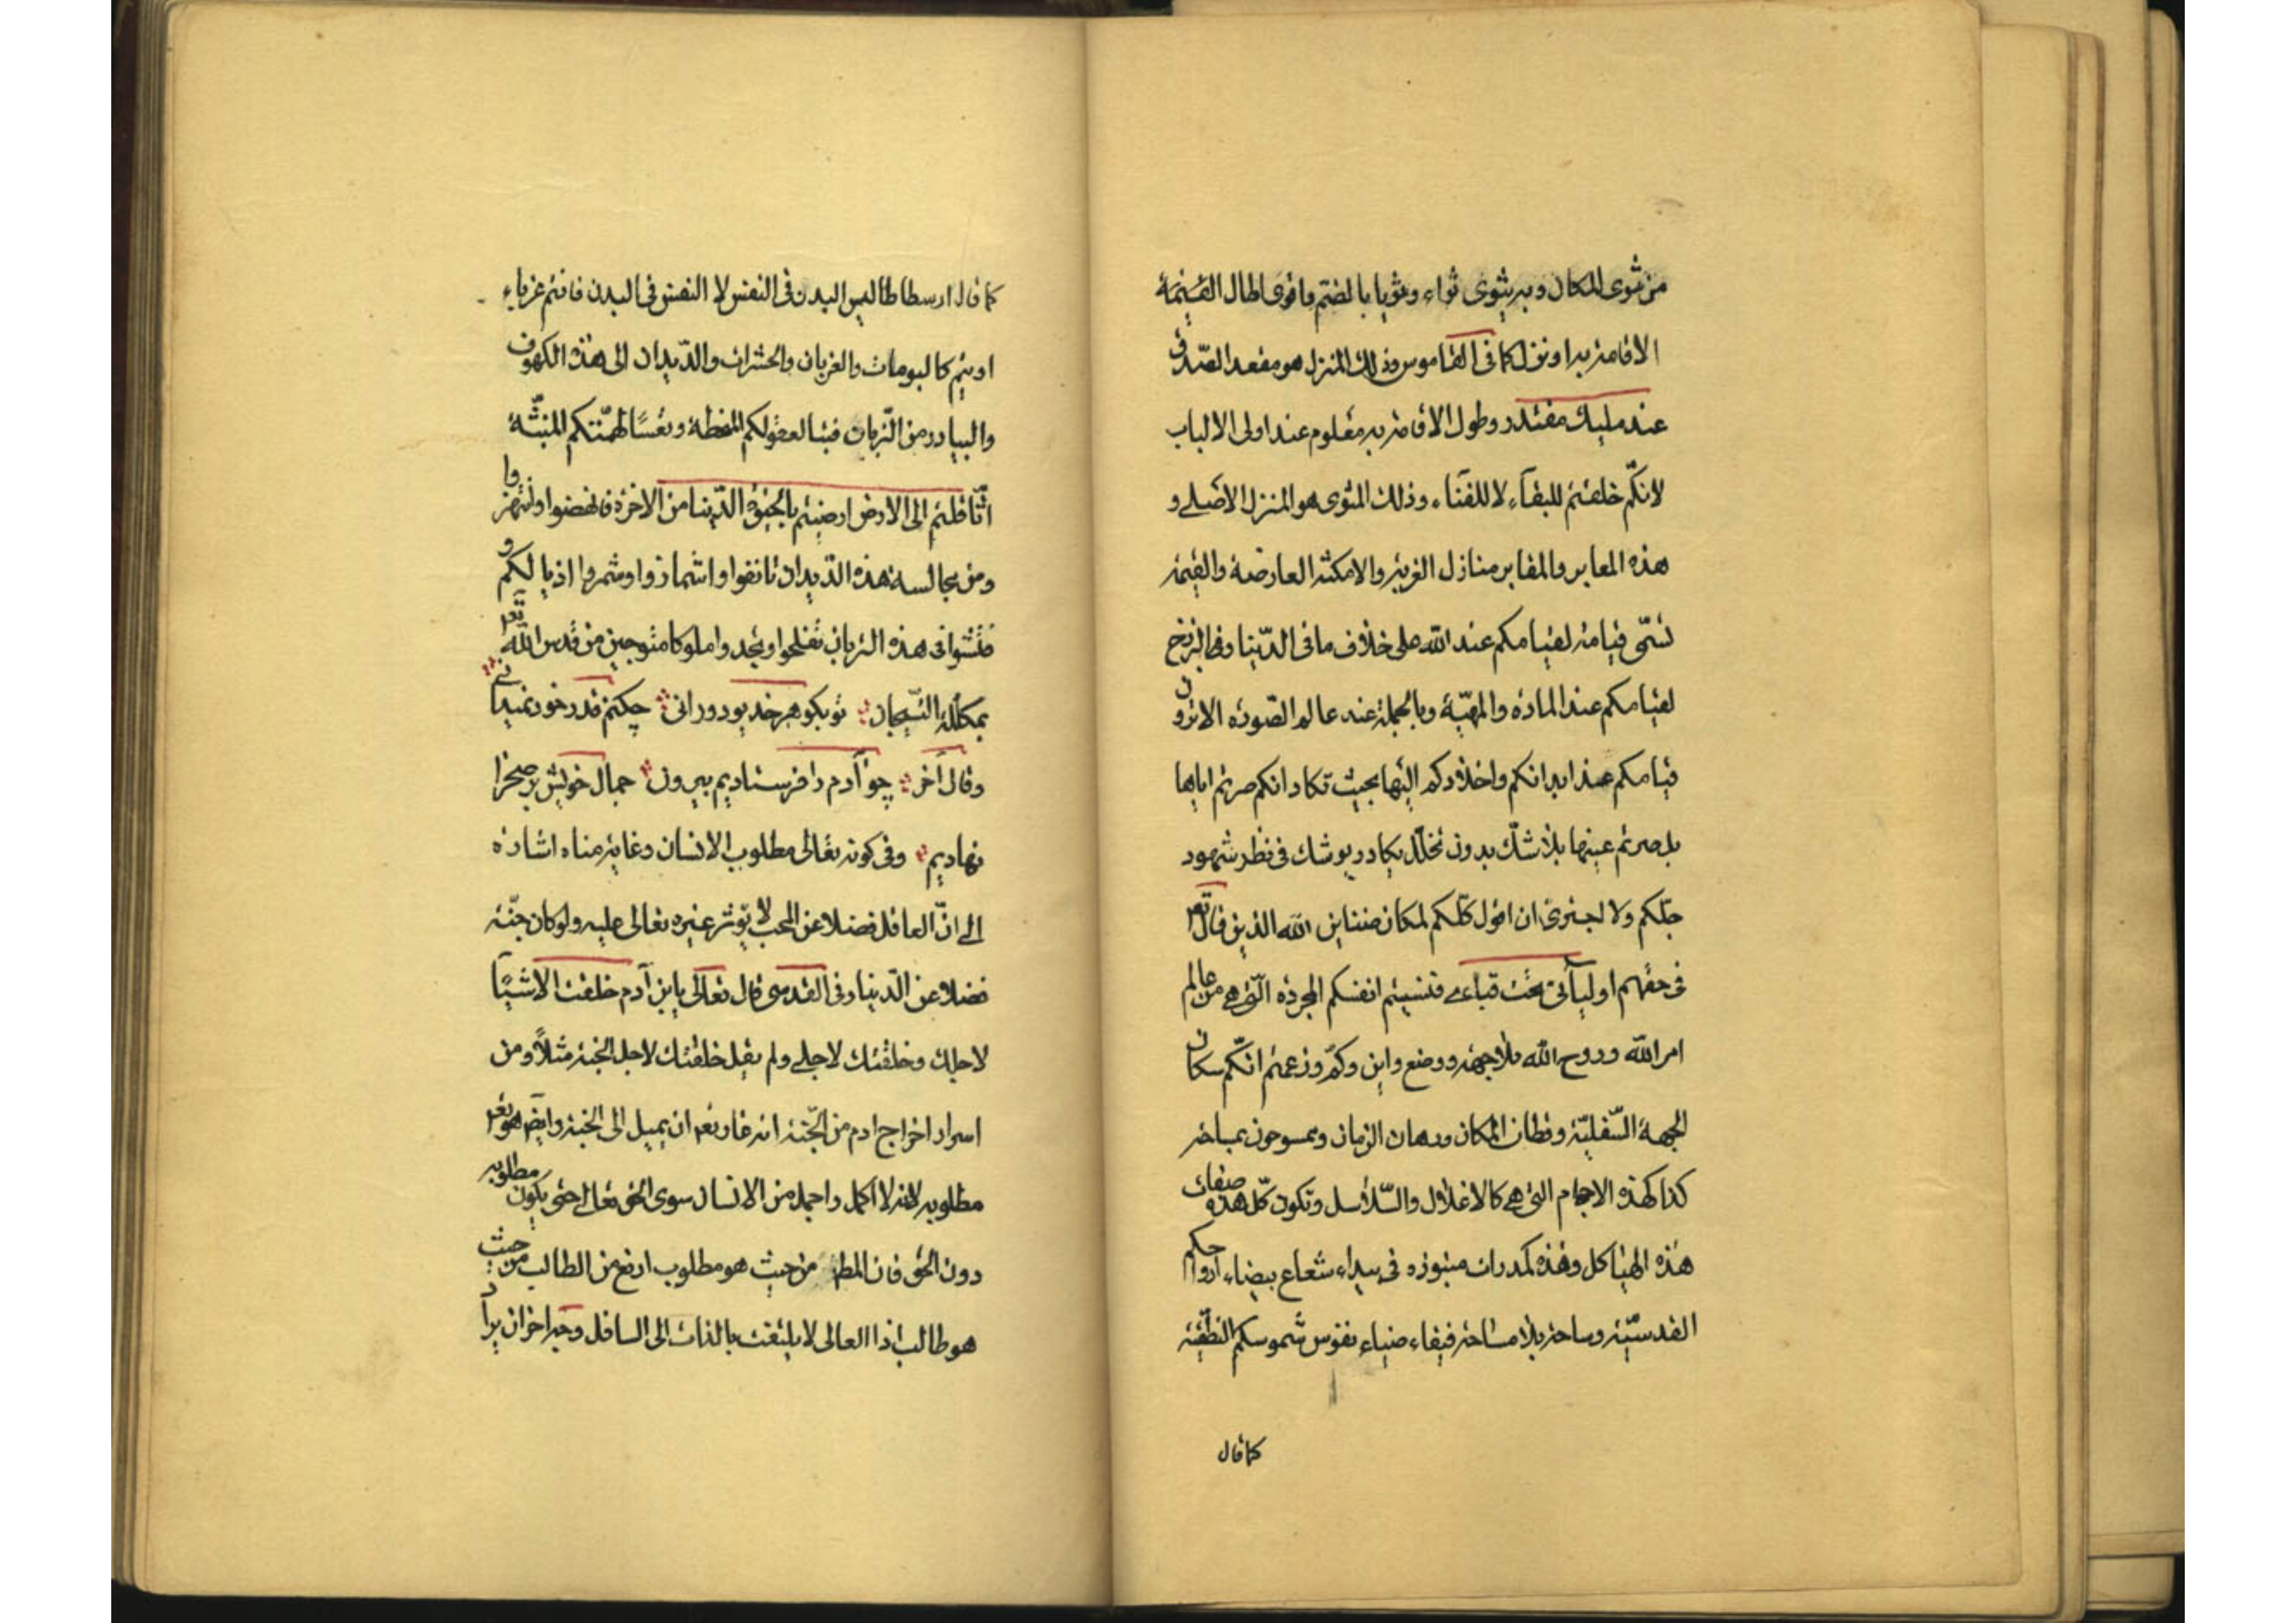 من ثوى المكان وبه يثوى ثواء وثويا بالضم واثوى اطال
الاقامة به او نزل كما فى القاموس وذلك المنزل هو مقعد الصدق
عند مليك مقتدر وطول الاقامة به معلوم عند اولى الالباب
لانكم خلقتم للبقاء لا للفناء وذلك المثوى هو المنزل الاصلى و
هذه المعابر والمقابر منازل الغربة والامكنة العارضة والقيمة
تسمى قيامة لقيامكم عند الله على خلاف ما فى الدنيا وفى البرزخ
لقيامكم عند المادة والمهية وبالجملة عند عالم الصورة الا ترون
قيامكم عند ابدانكم واخلادكم اليها بحيث تكاد انكم صرتم اياها
بل صرتم عينها بلا شك بدون تخلل يكاد ويوشك فى نظر شهود
جلكم ولا اجترئ ان اقول كلكم لمكان ضنائن الله الذين قال تعم
فى حقهم اوليائى تحت قبائى فنسيتم انفسكم المجردة التى هى من عالم
امر الله وروح الله بلا جهة ووضع واين وكم وزعمتم انكم سكان
الجهة السفلية وقطان المكان ورهان الزمان وممسوحون بمساحة
كذا كهذه الاجسام التى هى كالاغلال والسلاسل وتكون كل هذه صفات
هذه الهياكل وهذه كمدرات منبوذه فى بيداء شعاع بيضاء ارواحكم
القدسية وساحة بلا مساحة فيفاء ضياء نفوس شموسكم النطقية
كما قال
كما قال ارسطاطاليس البدن فى النفس لا النفس فى البدن فانتم غرباء
اويتم كالبومات والغربان والحشرات والديدان الى هذه الكهوف
والبيادر من التربان فتبا لعقولكم المنحطة وتعسا لهمتكم المنبثة
اثاقلتم الى الارض ارضيتم بالحيوة الدنيا من الاخرة فانهضوا وانتهزوا
ومن مجالسة هذه الديدان تانفوا واشمازوا وشمروا اذيالكم و
فتشوا فى هذه التربان تفلحوا وتجدوا ملوكا متوجين من قدس الله تعم
بمكللة التيجان تو بگوهر خديو دورانى چكنم قدر خود نميدانى
وقال آخر چو آدم را فرستاديم بيرون جمال خويش بر صحرا
نهاديم وفى كونه تعالى مطلوب الانسان وغاية مناه اشارة
الى ان العاقل فضلا عن المحب لا يؤثر غيره تعالى عليه ولو كان جنة
فضلا عن الدنيا وفى القدسى قال تعالى يابن آدم خلقت الاشياء
لاجلك وخلقتك لاجلى ولم يقل خلقتك لاجل الجنة مثلا ومن
اسرار اخراج ادم من الجنة انه غار تعم ان يميل الى الجنة وايض هو تعم
مطلوبه لانه لا اكمل واجمل من الانسان سوى الحق تعالى حتى يكون مطلوبه
دون الحق فان المط من حيث هو مطلوب ارفع من الطالب من حيث
هو طالب اذ العالى لا يلتفت بالذات الى السافل وجه اخر ان يرا